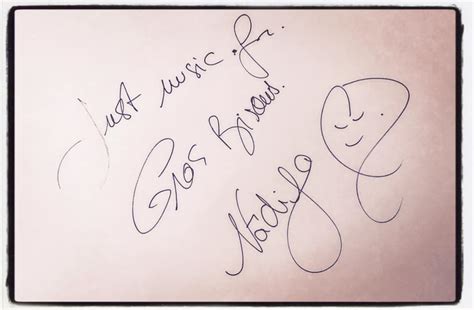 Just music for
Gros Bisous.
Nadija